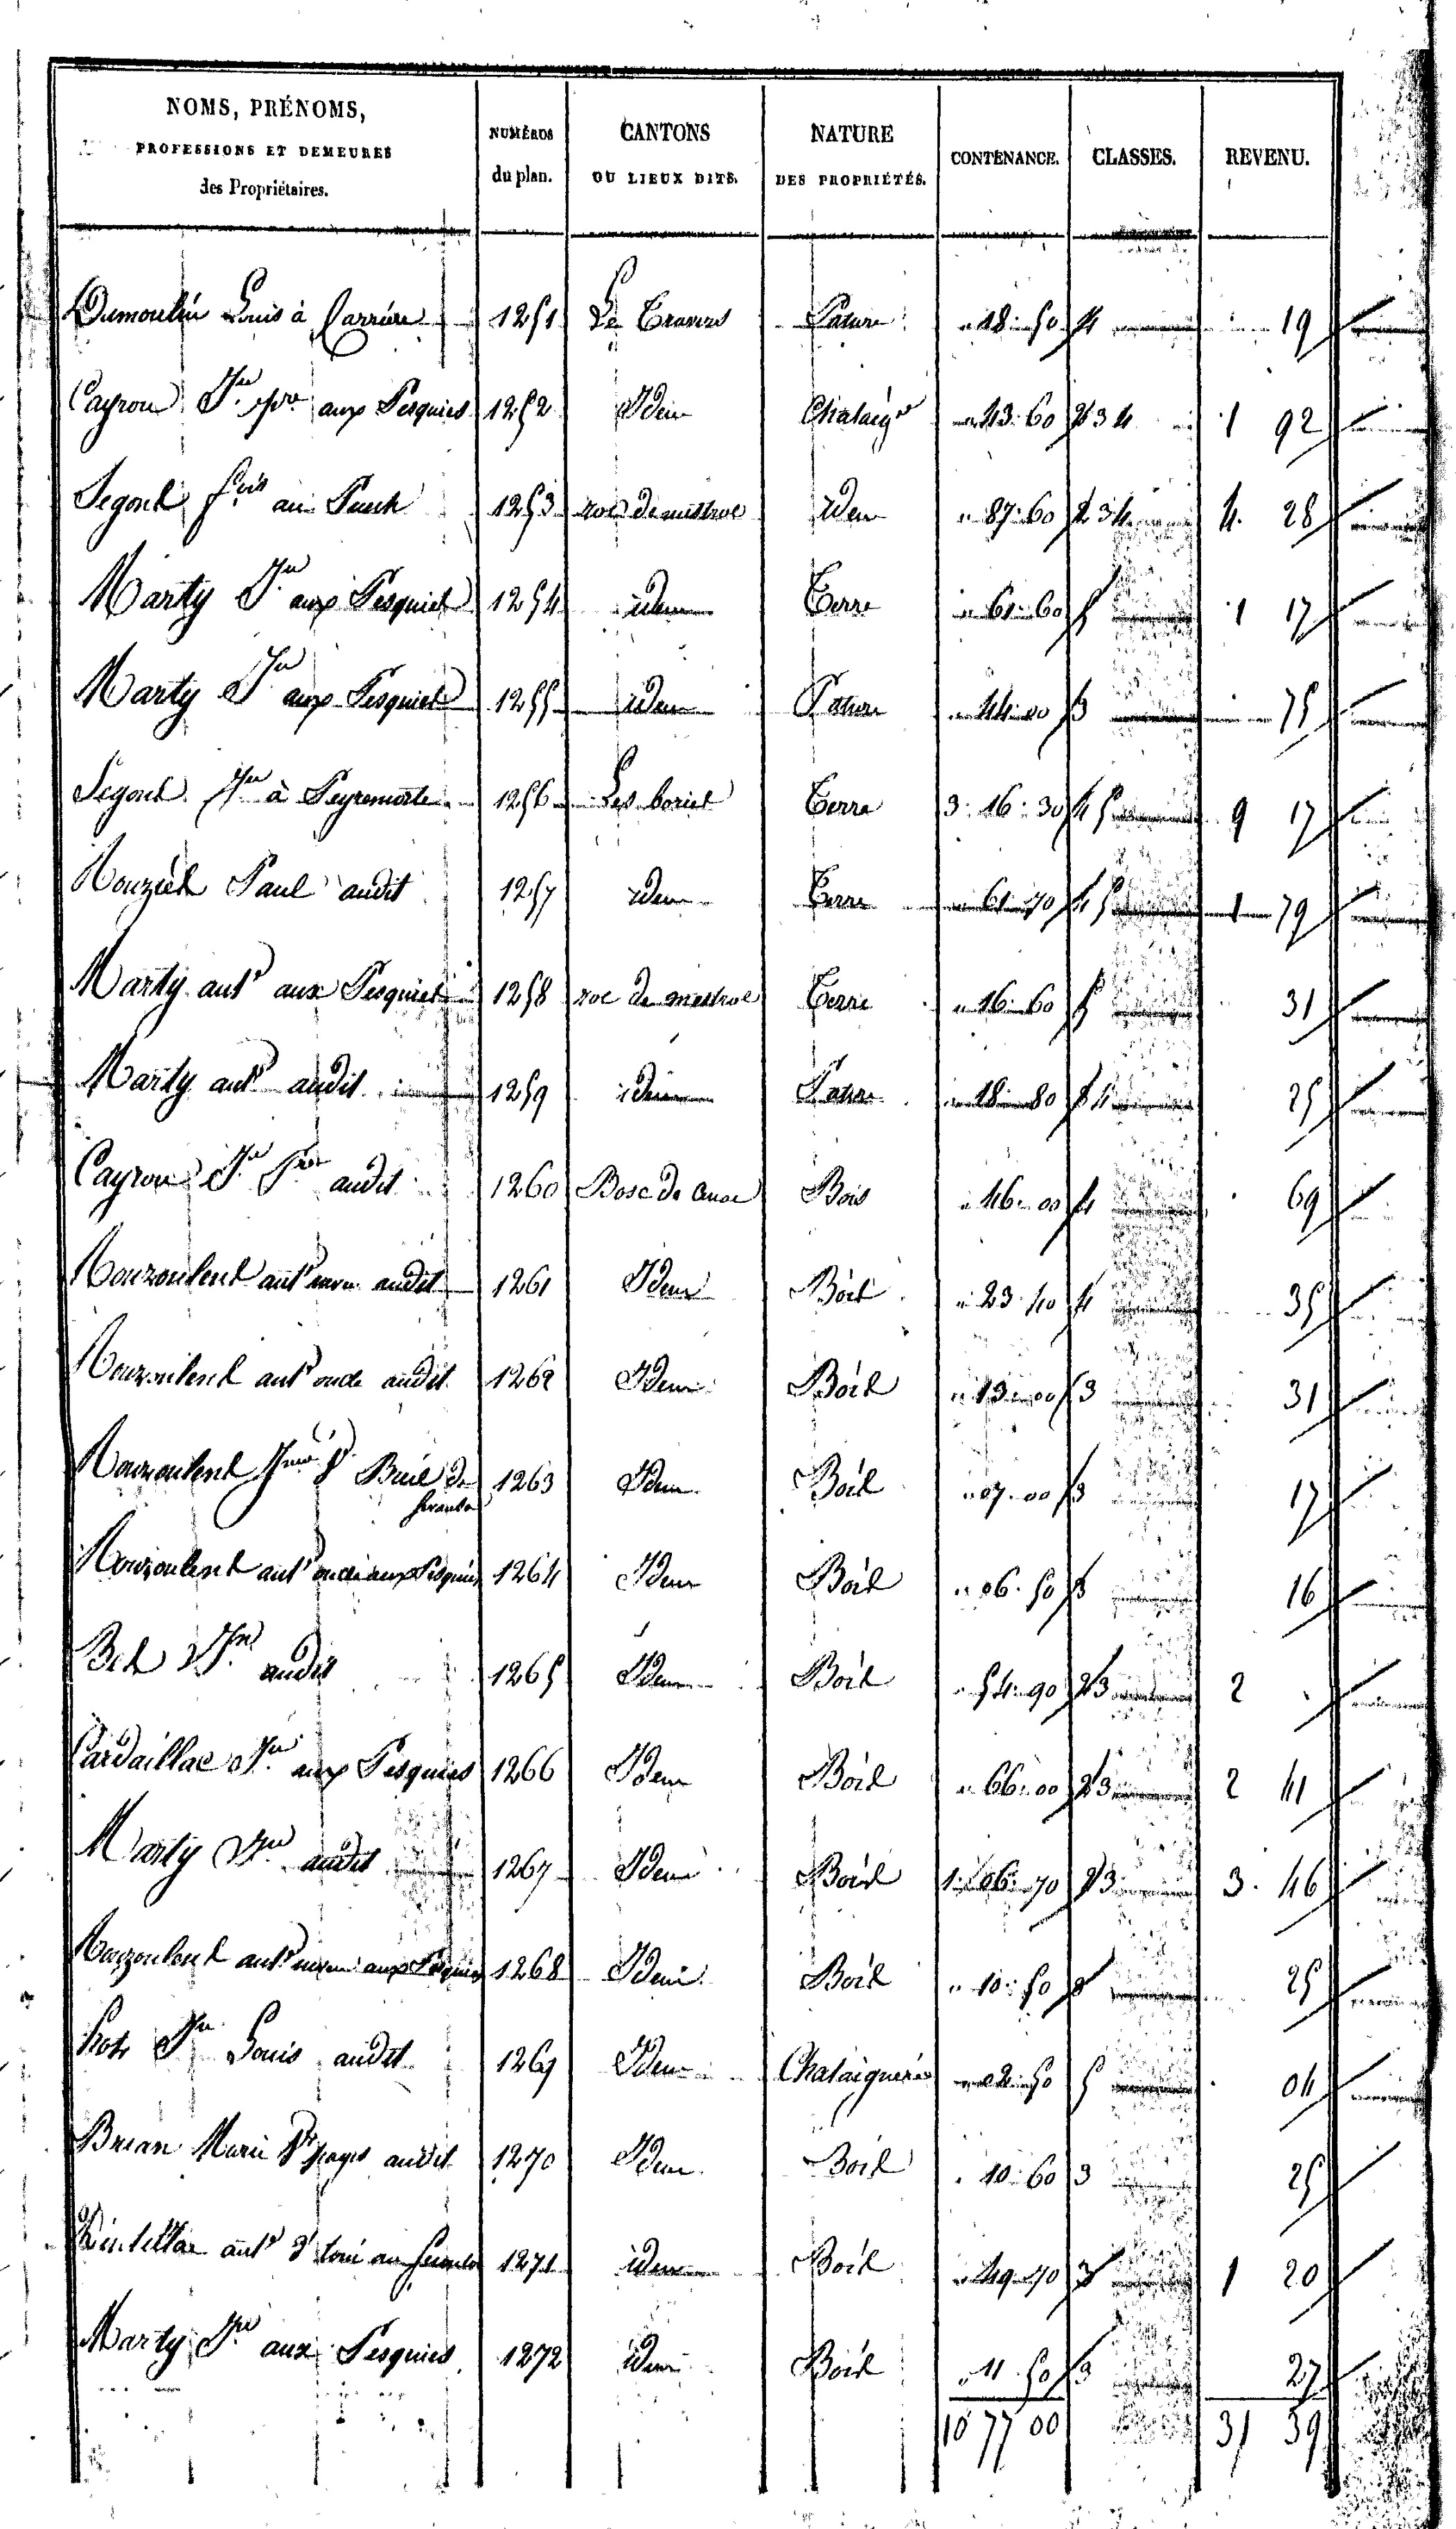 NOMS, PRÉNOMS,
PROFESSIONS ET DEMEURES
des Propriétaires.
NUMÉROS
du plan.
CANTONS
OU LIEUX DITS.
NATURE
DES PROPRIÉTÉS.
CONTENANCE.
CLASSES.
REVENU.
Dumoulin Louis à Carrière 1251 Le Travers Pature 18 50 4 19
Cayron Jn aux Pesquiés 1252 Idem Chataigre 43 60 2 3 4 1 92
Segond fcois au Puech 1253 roc de mistrol idem 87 60 2 3 4 4 28
Marty Jn aux Pesquiés 1254 idem Terre 61 60 5 1 17
Marty Jn aux Pesquiés 1255 idem Pature 44 00 3 75
Segond Jn à Peyremorte 1256 Les boriés Terre 3 16 30 4 5 9 17
Paul audit 1257 idem Terre 61 70 4 5 1 79
Marty ante aux Pesquiés 1258 roc de mestrol Terre 16 60 5 31
Marty ante audit 1259 idem Pature 18 80 4 25
Cayron Jn audit 1260 Bosc de Bois 46 00 4 69
ante neveu audit 1261 Idem Bois 23 40 4 35
ante oncle audit 1262 Idem Bois 13 00 3 31
1263 Idem Bois 07 00 3 17
ante oncle aux Pesquiés 1264 Idem Bois 06 50 3 16
Jn audit 1265 Idem Bois 54 90 2 3 2
Cardaillac Jn aux Pesquiés 1266 Idem Bois 66 00 2 3 2 41
Marty Jn audit 1267 Idem Bois 1 06 70 2 3 3 46
ante neveu aux Pesquiés 1268 Idem Bois 10 50 3 25
Jn Louis audit 1269 Idem Chataigneraie 02 50 5 04
Brian Marie audit 1270 Idem Bois 10 60 3 25
ante 1271 idem Bois 49 70 3 1 20
Marty Jn aux Pesquiés 1272 idem Bois 11 50 3 27
10 77 00 31 39